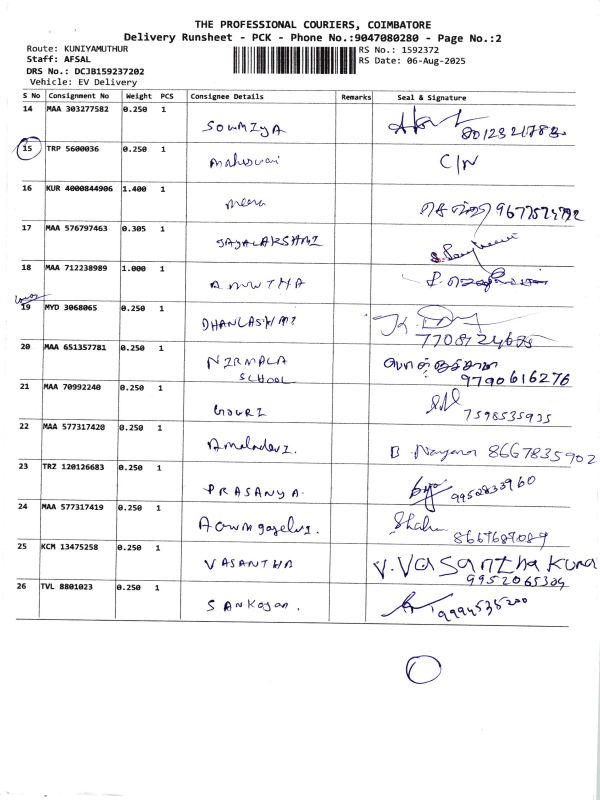 THE PROFESSIONAL COURIERS, COIMBATORE
Delivery Runsheet - PCK - Phone No.:9047080280 - Page No.:2
Route: KUNIYAMUTHUR
RS No.: 1592372
Staff: AFSAL
RS Date: 06-Aug-2025
DRS No.: DCJB159237202
Vehicle: EV Delivery
S No Consignment No Weight PCS Consignee Details Remarks Seal & Signature
14 MAA 303277582 0.250 1 SOWMIYA
15 TRP 5600036 0.250 1 Maheswari C/N
16 KUR 4000844906 1.400 1 Meera
17 MAA 576797463 0.305 1 JAYALAKSHMI
18 MAA 712238989 1.000 1
19 MYD 3068065 0.250 1 DHANLASHMI
20 MAA 651357781 0.250 1 NIRMALA
SCHOOL 9790616276
21 MAA 70992240 0.250 1 GOURI 7598535935
22 MAA 577317420 0.250 1 Amaladevi. B. Nayana 8667835902
23 TRZ 120126683 0.250 1 PRASANYA. 9952833960
24 MAA 577317419 0.250 1 8667687089
25 KCM 13475258 0.250 1 VASANTHA V.Vasantha Kuma
9952065304
26 TVL 8801023 0.250 1 9994535200